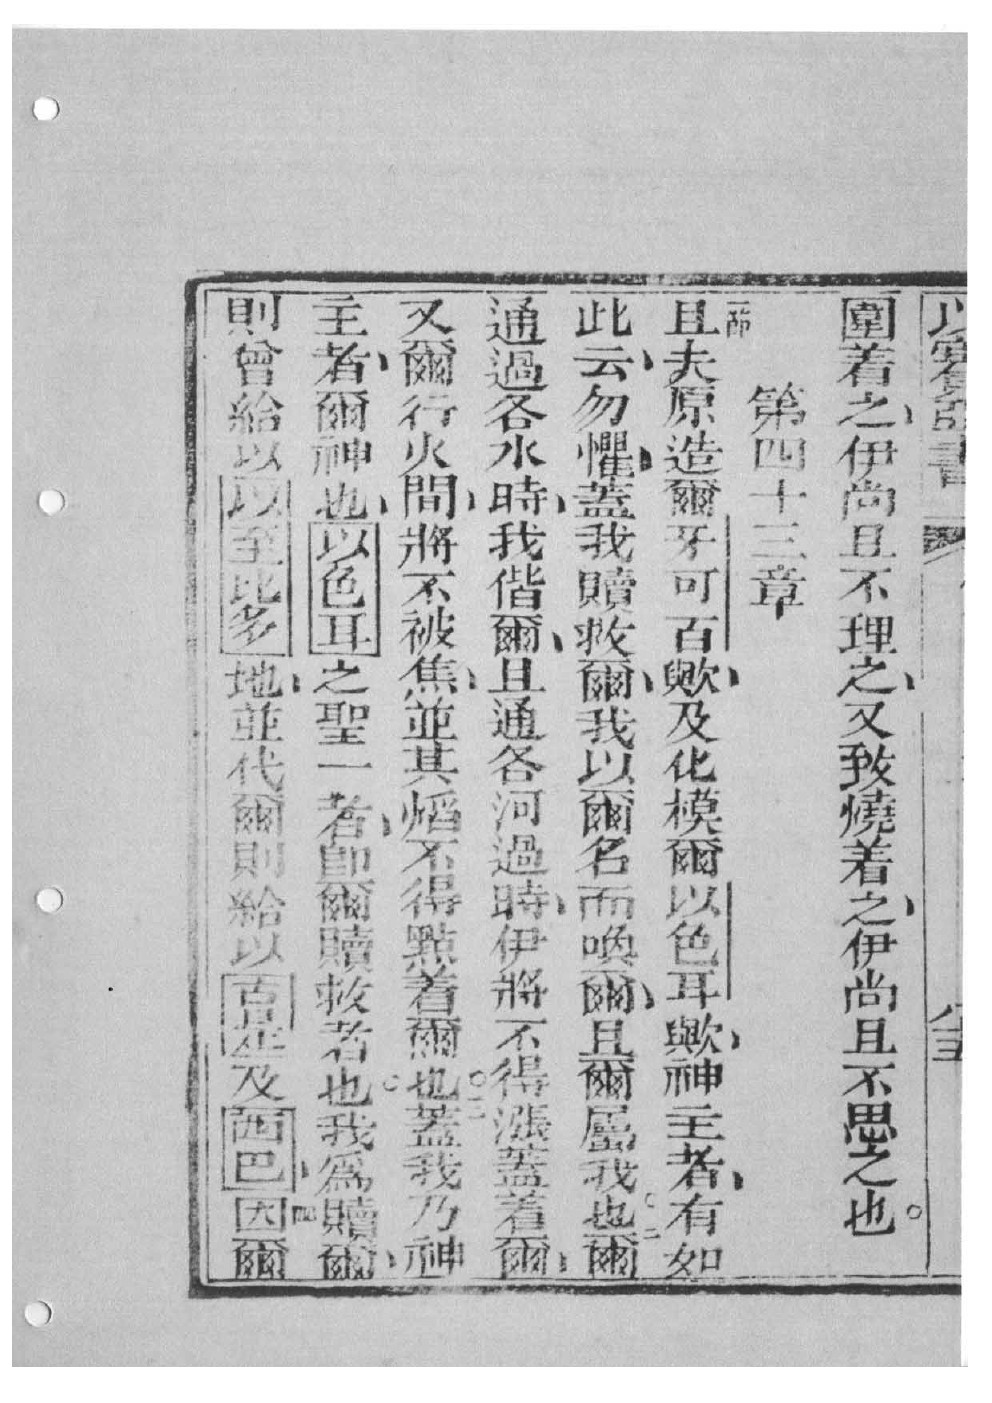 以賽亞書 八三
圍着之伊尚且不理之又致燒着之伊尚且不思之也。
第四十三章
一節且夫原造爾牙可百歟及化模爾以色耳歟神主者有如
此云勿懼蓋我贖救爾我以爾名而喚爾且爾屬我也。二爾
通過各水時我偕爾且通各河過時伊將不得漲蓋着爾
又爾行火間將不被焦並其熖不得點着爾也。三蓋我乃神
主者爾神也以色耳之聖一者即爾贖救者也。我為贖爾
則曾給以以至比多地並代爾則給以古是及西巴四因爾